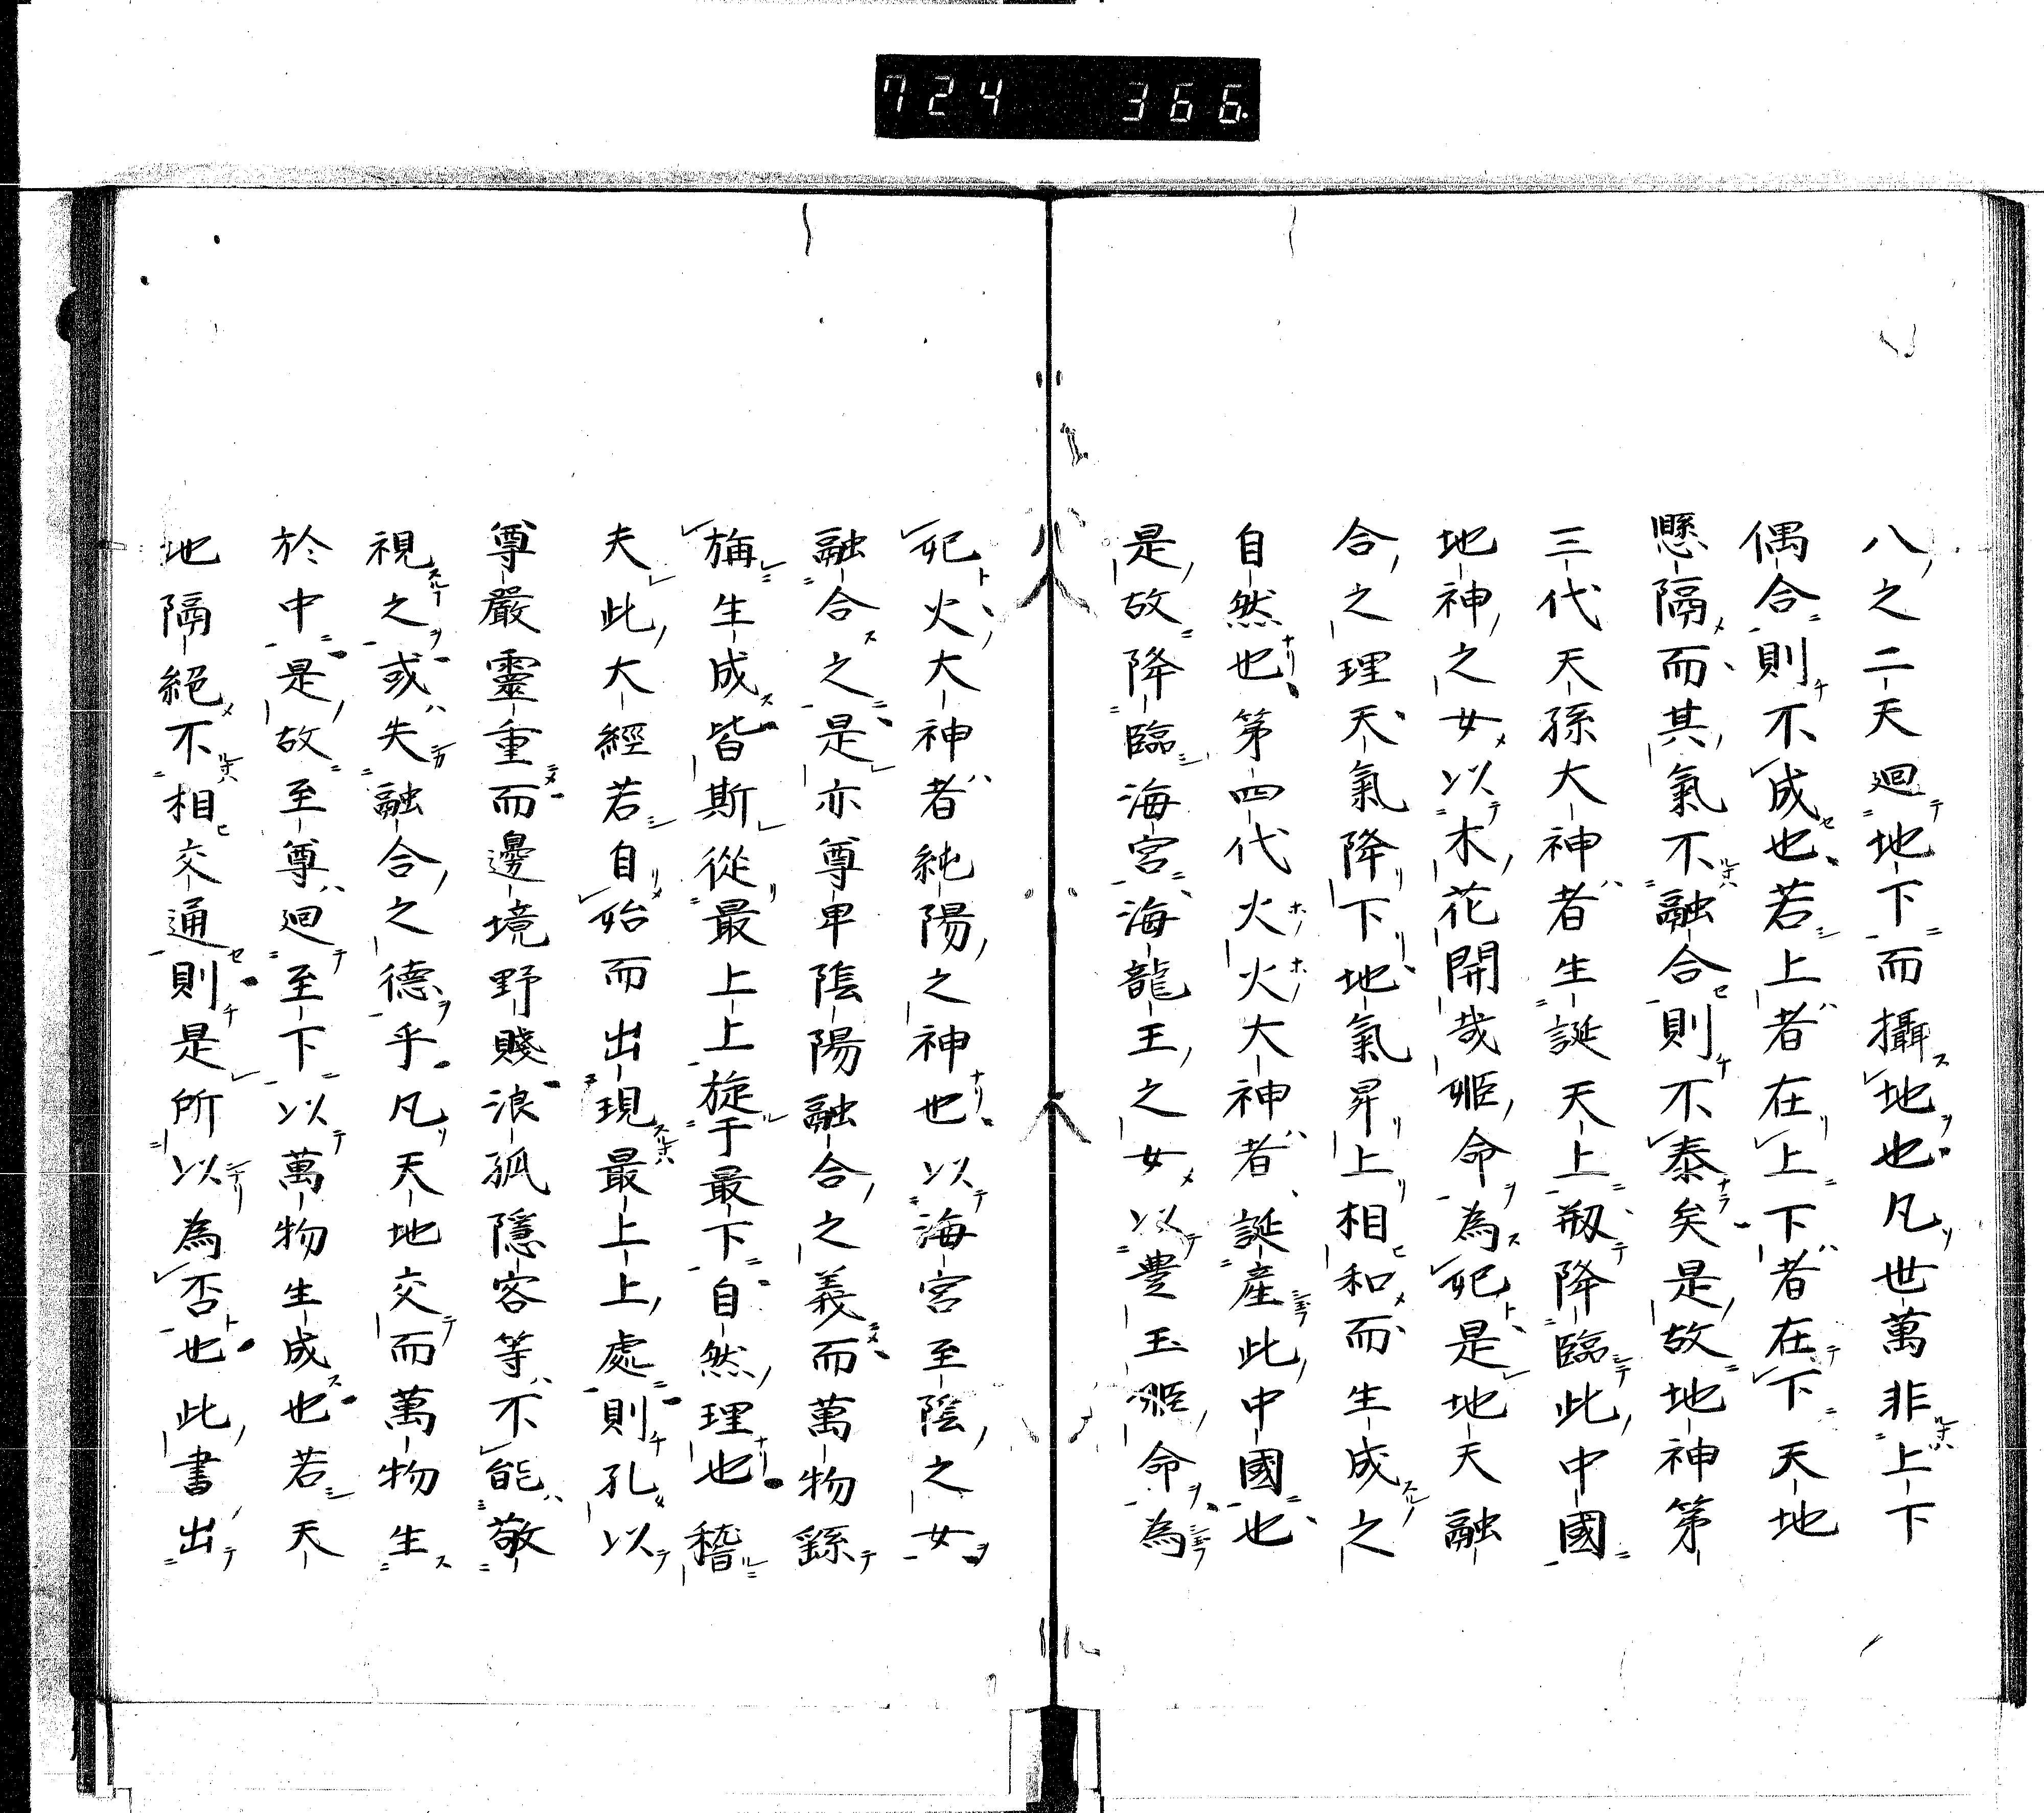 724 366
八之二天廻地下而攝地也凡世萬非上下
偶合則不成也若上者在上下者在下天地
懸隔而其氣不融合則不泰矣是故地神第
三代天孫大神者生誕天上扨降臨此中國
地神之女以木花開哉姬命為妃是地天融
合之理天氣降下地氣昇上相和而生成之
自然也第四代火火大神者誕產此中國也
是故降臨海宮海龍王之女以豊玉姬命為
妃火大神者純陽之神也以海宮至陰之女
融合之是亦尊卑陰陽融合之義而萬物繇
旃生成皆斯從最上上旋于最下自然理也稽
夫此大經若自始而出現最上上處則孔以
尊嚴靈重而邊境野賤浪孤隱客等不能敬
視之或失融合之德乎凡天地交而萬物生
於中是故至尊廻至下以萬物生成也若天
地隔絕不相交通則是所以為否也此書出